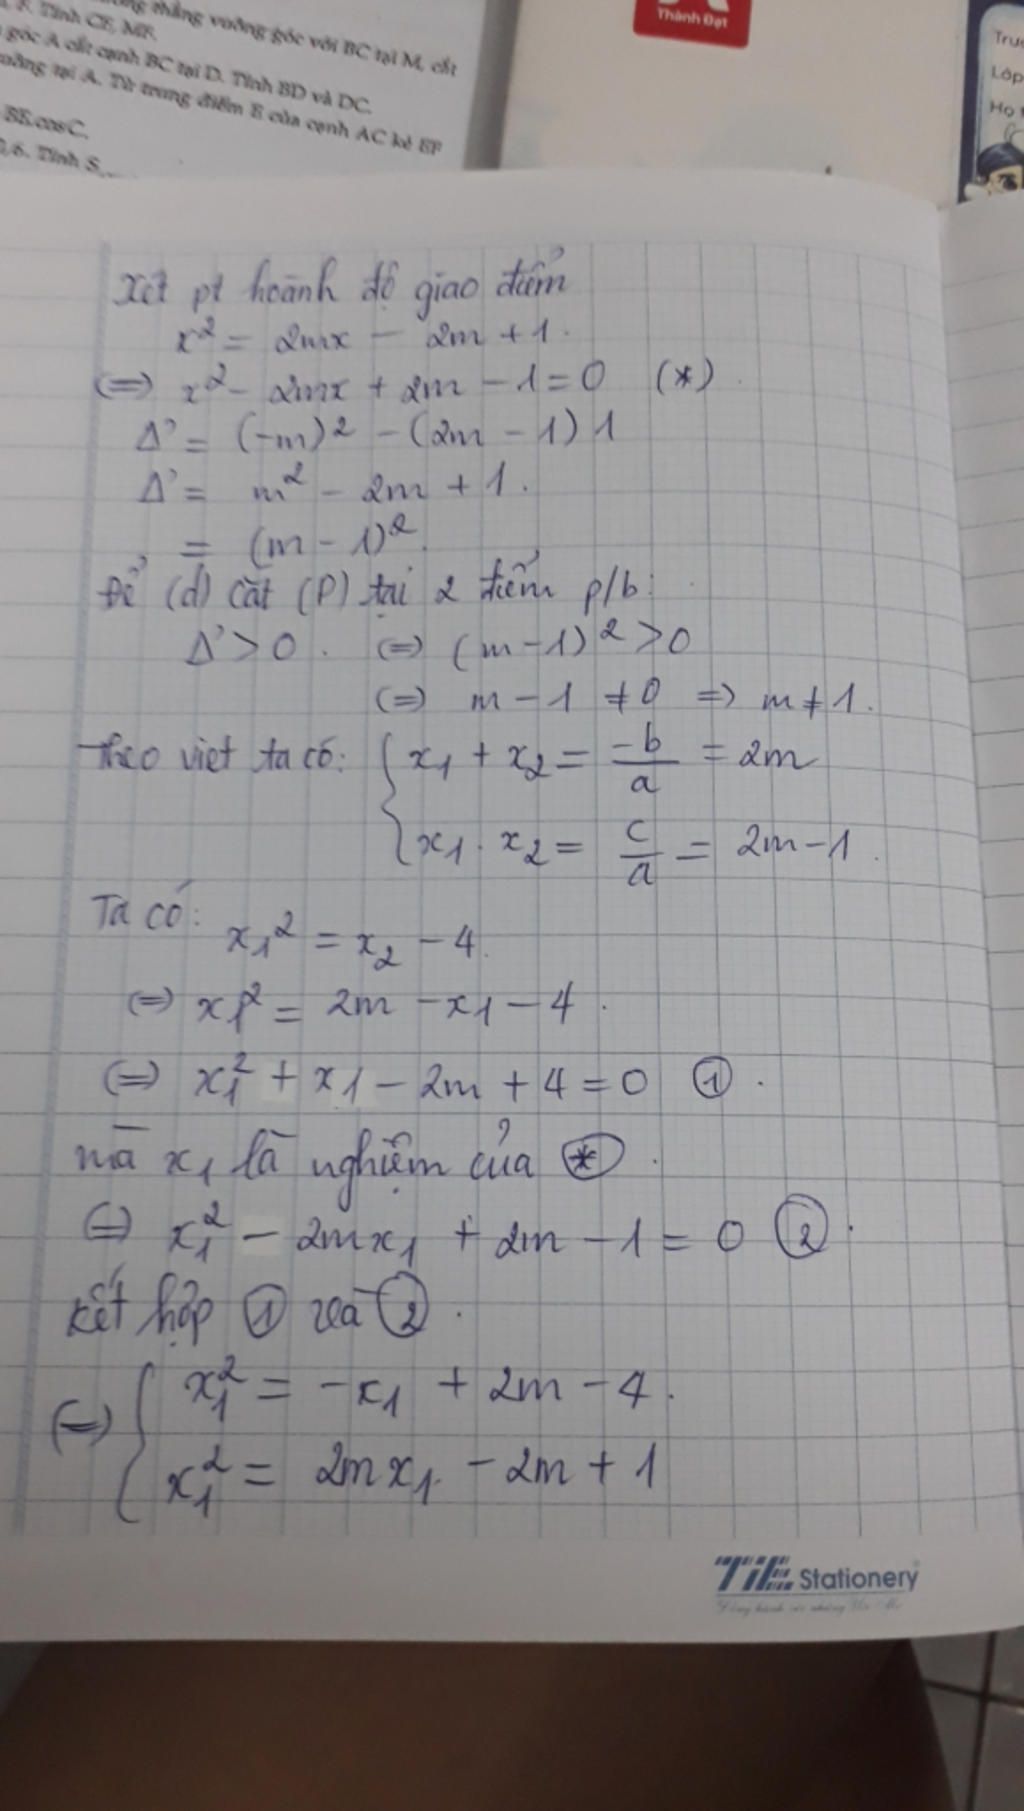 F. Tính CE, MF.
thẳng vuông góc với BC tại M, cắt
góc A cắt cạnh BC tại D. Tính BD và DC.
tại A. Từ trung điểm E của cạnh AC kẻ EF
BE.cosC.
Tính S
Thành Đạt
Lớp
Họ
Xét pt hoành độ giao điểm
x² = 2mx - 2m + 1.
(=) x² - 2mx + 2m - 1 = 0 (*).
Δ' = (-m)² - (2m - 1) 1
Δ' = m² - 2m + 1.
= (m - 1)².
Để (d) cắt (P) tại 2 điểm p/b:
Δ' > 0. (=) (m - 1)² > 0
(=) m - 1 ≠ 0 => m ≠ 1.
Theo viet ta có: { x₁ + x₂ = -b/a = 2m
x₁ . x₂ = c/a = 2m - 1.
Ta có: x₁² = x₂ - 4.
(=) x₁² = 2m - x₁ - 4.
(=) x₁² + x₁ - 2m + 4 = 0 ①.
mà x₁ là nghiệm của (*).
(=) x₁² - 2mx₁ + 2m - 1 = 0 ②.
kết hợp ① và ②.
(=) { x₁² = -x₁ + 2m - 4.
x₁² = 2mx₁ - 2m + 1
TiE Stationery